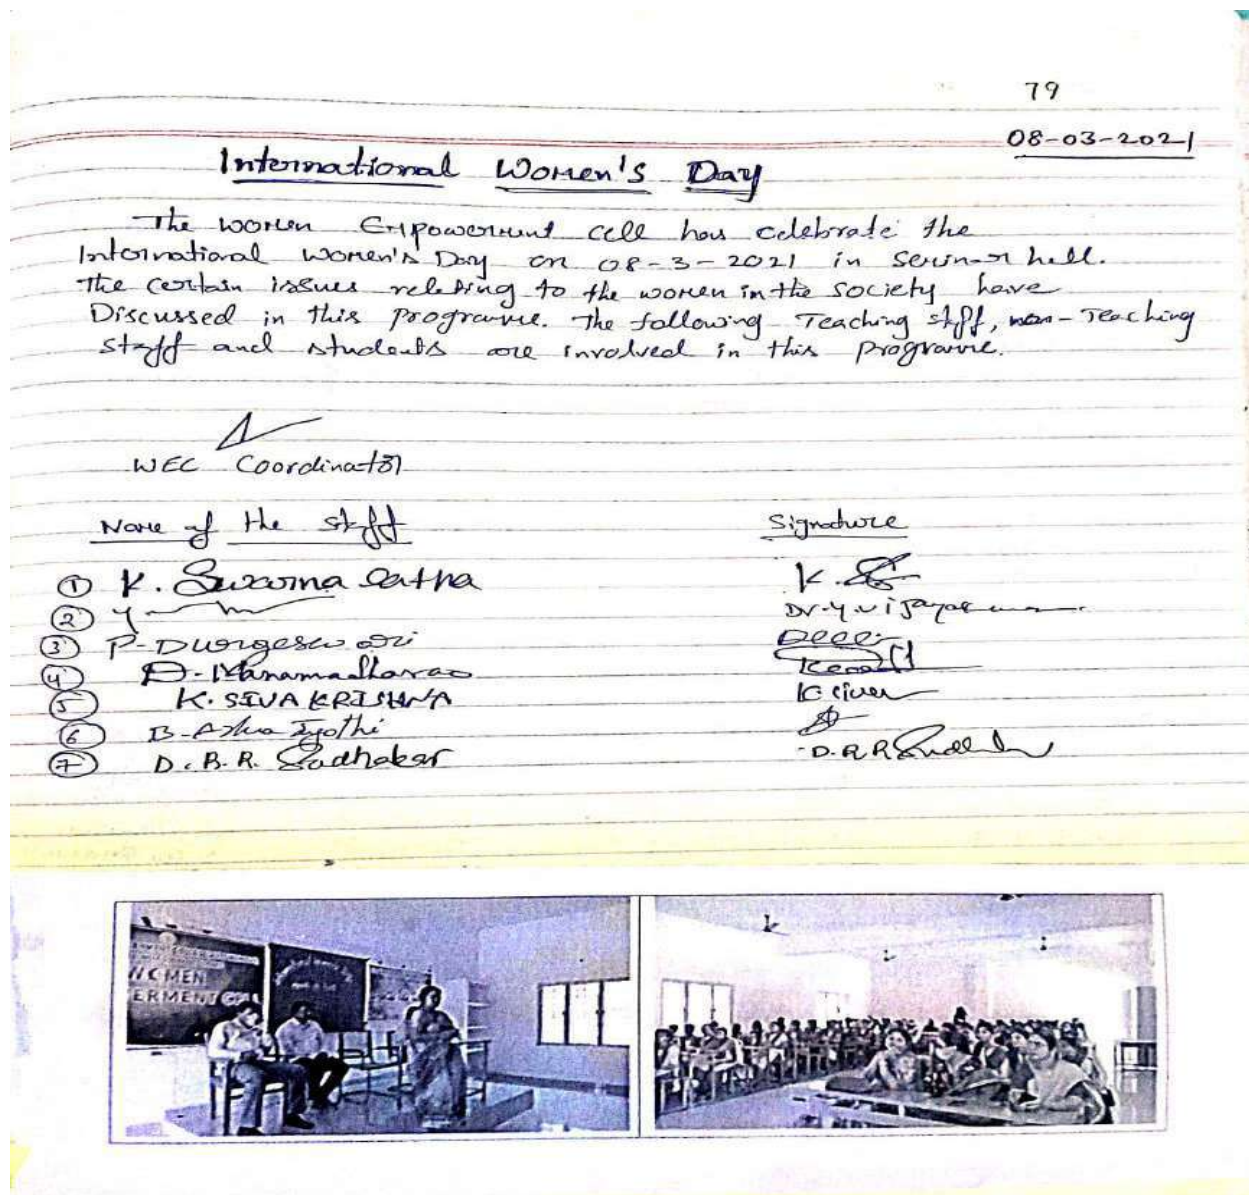 79
08-03-2021
International Women's Day
The women Empowerment cell has celebrate the
International Women's Day on 08-3-2021 in seminar hall.
The certain issues relating to the women in the society have
Discussed in this programme. The following Teaching staff, non-Teaching
staff and students are involved in this programme.
WEC Coordinator
Name of the staff Signature
① K. Swarna Latha K.
② Dr. Y. Vijaya
③ P. Durgeswari
④ D. Manamadharao
⑤ K. SIVA KRISHNA K. Siva
⑥ B. Asha Jyothi
⑦ D. B. R. Sudhakar
WOMEN
ERMENT CELL